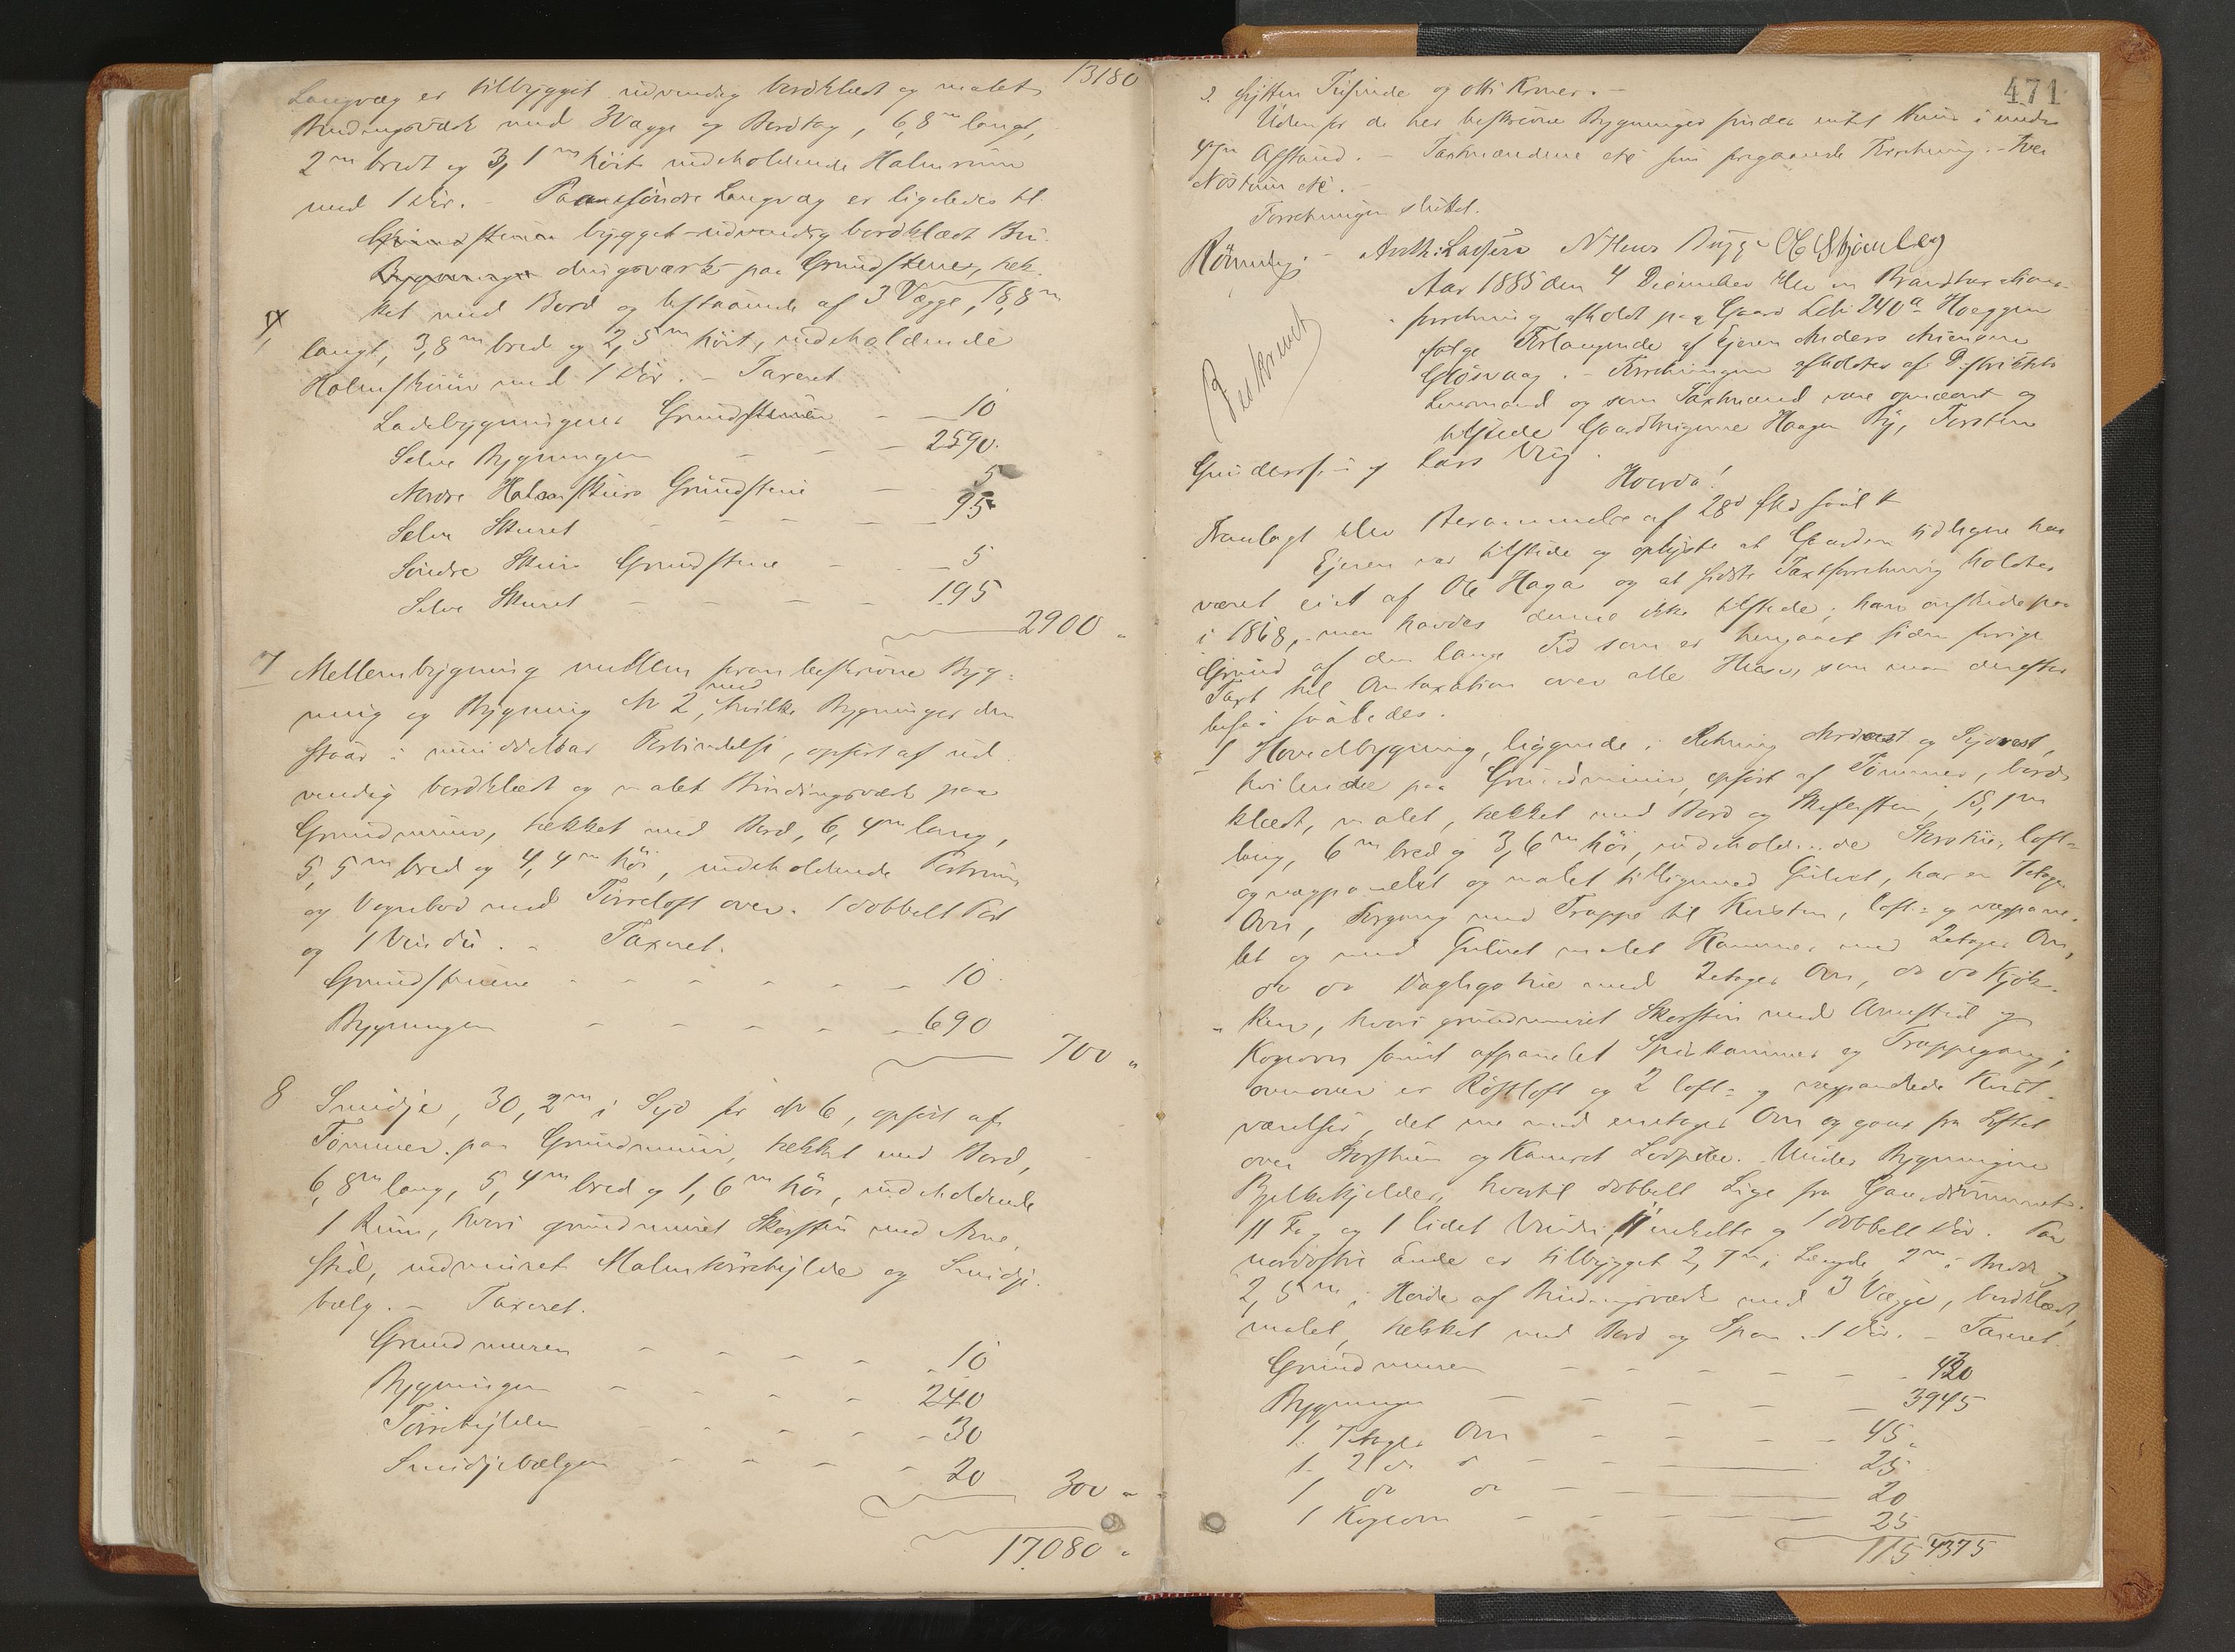 13180
Langvæg er tilbygget udvendig bordklædt og malet
Bindingsværk med 3 Vægge og Bordtag, 6,8 m langt,
2 m bredt og 3,1 m höit indeholdende Halmrum
med 1 Dör. - Paa söndre Langvæg er ligeledes til
Grundstenen bygget udvendig bordklædt Bin-
Bygningen dingsværk paa Grundstene, tæk-
ket med Bord og bestaaende af 3 Vægge, 18,8 m
langt, 3,8 m bred og 2,5 m höit, indeholdende
Halmskuur med 1 Dör. - Taxeret
Ladebygningens Grundstenen - 10
Selve Bygningen - - - 2590.
Nordre Halmskuurs Grundstene - 5
Selve Skuret - - - - 95
Söndre Skuurs Grundstene - - 5
Selve Skuret - - - - 195
2900 "
7 Mellembygning mellem foran beskrevne Byg-
ning og Bygning No 2, med hvilke Bygninger den
staar i umiddelbar Forbindelse, opfört af ud-
vendig bordklædt og malet Bindingsværk paa
Grundmuur, tækket med Bord, 6,4 m lang,
5,5 m bred og 4,4 m höi, indeholdende Portrum
og Vognbod med Törreloft over. 1 dobbelt Port
og 1 Vindu. - Taxeret.
Grundstenene - - - - - 10
Bygningen - - - - - 690
700 "
8 Smidje, 30,2 m i Syd for No 6, opfört af
Tömmer paa Grundmuur, tækket med Bord,
6,8 m lang, 5,4 m bred og 1,6 m höi, indeholdende
1 Rum, hvori grundmuret Skorsten med Arne-
sted, indmuret Malmtörrekjedel og Smidje-
bælg. - Taxeret.
Grundmuren - - - - 10
Bygningen - - - - 240
Törrekjedelen - - - 30
Smidjebælgen - - - - 20
300 "
17080 "
471
Sytten Tusinde og otti Kroner. -
Udenfor de her beskrevne Bygninger findes intet Huus i mindre
Afstand. - Taxtmændene etc som foregaaende Forretning. -
Forretningen sluttet.
Rönneberg. - Arth: Lassen N Hans Bugge
Beskrevet
Aar 1885 den 4 December blev en Brandtaxations-
forretning afholdt paa Gaard Löbe 240 a Hoeggen
fölge Forlangende af Ejeren Anders
. - Forretningen afholdtes af Distriktets
Lensmand og som Taxtmænd vare opnævnt og
tilstede Gaardbrugerne Haagen By, Torsten
Gunderssen og Lars Vig.
Hvorda!
Fremlagt blev Berammelse af 28de f. Md saal.
Ejeren var tilstede og oplyste at Gaarden tidligere har
været eiet af Ole Haga og at sidste Taxtforretning holdtes
i 1868, men havdes denne ikke tilstede; han önskede paa
Grund af den lange Tid som er hengaaet siden forrige
Taxt hel Omtaxation over alle Huse, som man derefter
besaa saaledes.
1 Hovedbygning, liggende i Retning Nordöst og Sydvest,
hvilende paa Grundmuur, opfört af Tömmer, bord-
klædt, malet, tækket med Bord og Skifersten, 15,1 m
lang, 6 m bred og 3,6 m höi, indeholdende Storstue, loft-
og vægpanelet og malet tilligemed Gulvet, har en 7etages
Ovn, Forgang med Trappe til Kvisten, loft- og vægpane-
let og med Gulvet malet Kammer med 2etages Ovn,
do do Dagligstue med 2etages Ovn, do do Kjök-
ken, hvori grundmuret Skorsten med Arnested og
Kogeovn samt afpanelet Spiskammer og Trappegang;
ovenover er Röstloft og 2 loft- og vægpanelede Kvist-
værelser, det ene med enetages Ovn og gaar fra Loftet
over Storstuen og Kameret Lodpibe. Under Bygningen
Bjelkekjelder, hvortil dobbelt Lige fra Gaardsrummet.
11 Fag og 1 lidet Vindu, 11 enkelte og 1 dobbelt Dör. Paa
nordöstre Ende er tilbygget 2,7 m i Længde, 2 m i Bredde og
2,5 m i Höide af Bindingsværk med 3 Vægge, bordklædt,
malet, tækket med Bord og Spon. 1 Dör. - Taxeret.
Grundmuren - - - - - 320
Bygningen - - - - - 3945
1 7etages Ovn - - - - 45
1 2 do do - - 25
1 do do - - 20
1 Kogeovn - - - - 25
115 4375